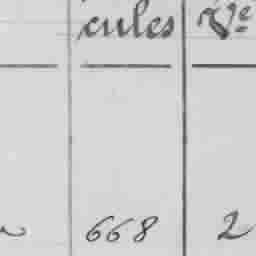 cules Nº
668 2